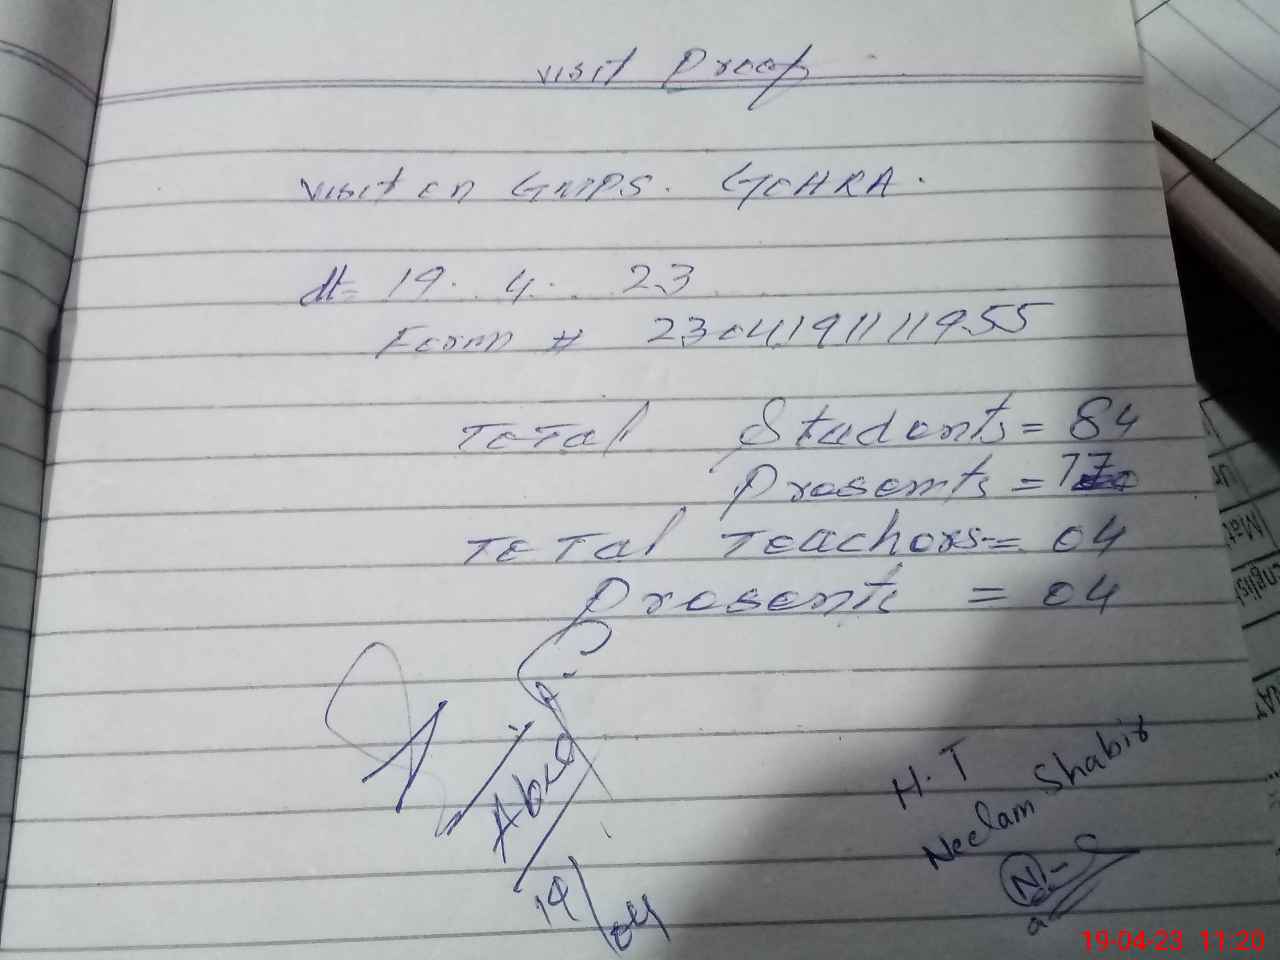 visit Proof
visit on GMPS. GOHRA.
dt= 19. 4. 23
Form # 230419111955
Total Students = 84
Presents = 77
Total Teachers = 04
Presents = 04
19/04
H.T
Neelam Shabir
19-04-23 11:20